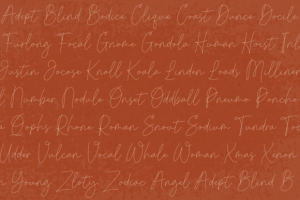 Adept Blind Bodice Clique Coast Dunce Docile
Furlong Focal Gnome Gondola Human Hoist In
Justin Jocose Knoll Koala Linden Loads Milliner
Number Nodule Onset Oddball Pneumo Poncho
Qophs Rhone Roman Snout Sodium Tundra To
Udder Vulcan Vocal Whale Woman Xmas Xenon
Young Zloty Zodiac Angel Adept Blind B